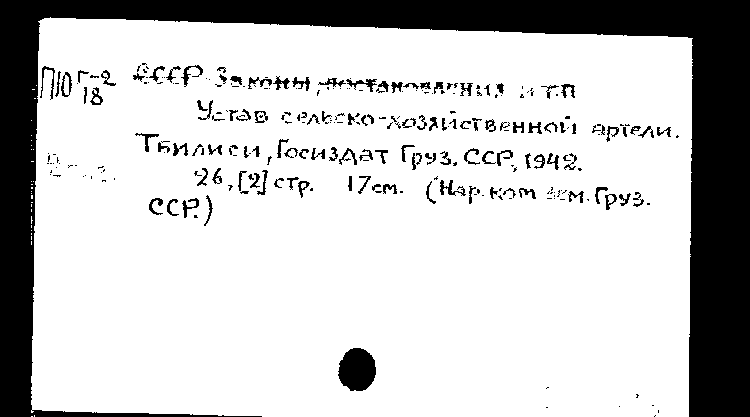 ПЮ Г-2
18
СССР Законы, постановления и т.п
Устав сельско-хозяйственной артели.
Тбилиси, Госиздат Груз. ССР, 1942.
26, [2] стр. 17см. (Нар. ком зем. Груз.
ССР.)